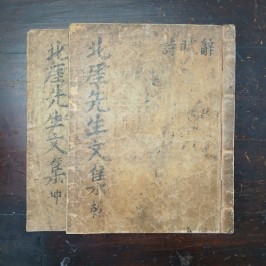 北厓先生文集 乾
辭賦詩
北厓先生文集 坤